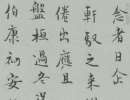 念者日企
軒馭之来
倦出應且
盤桓過冬
伯康初安